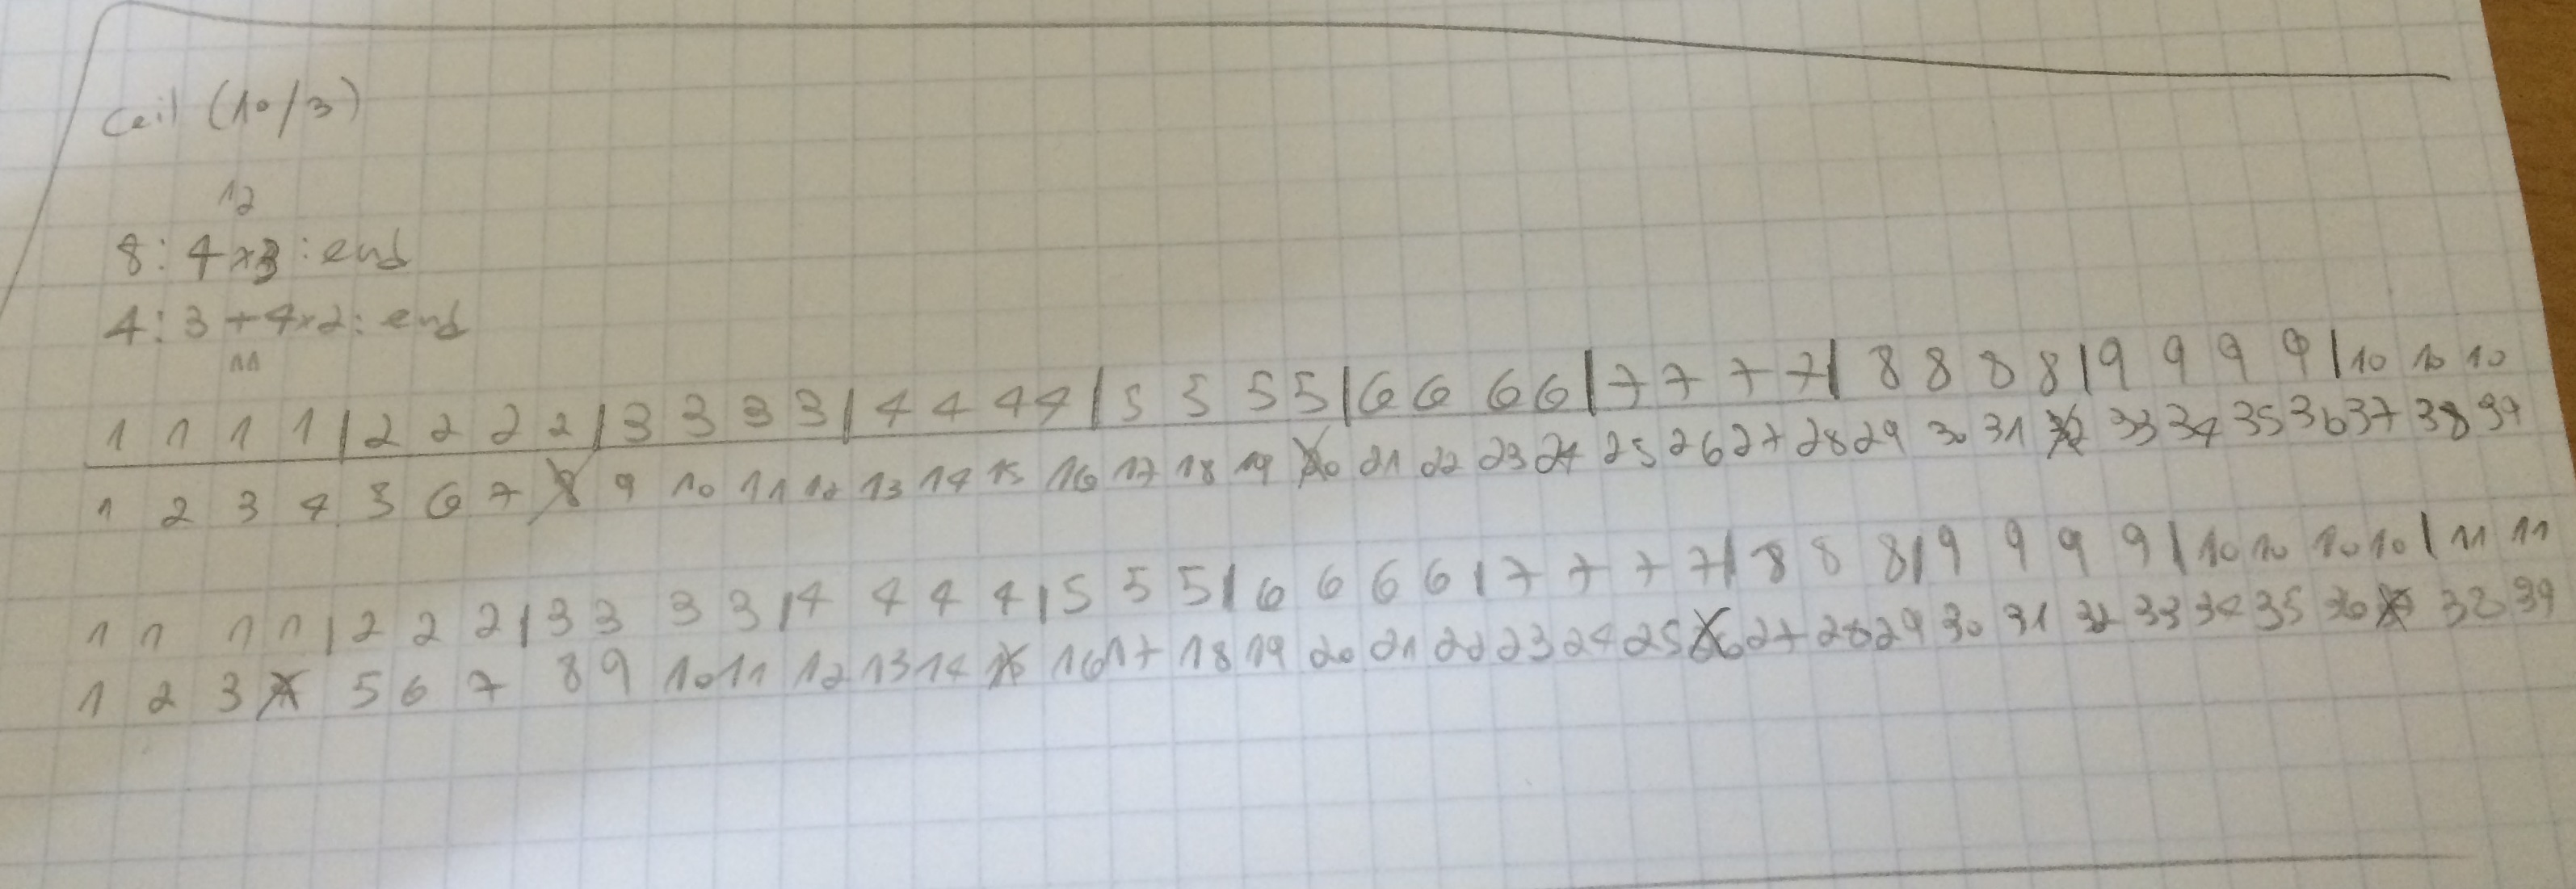 ceil (10/3)
12
8: 4x3 : end
4: 3 + 4x2: end
11
1 1 1 1 | 2 2 2 2 | 3 3 3 3 | 4 4 4 4 | 5 5 5 5 | 6 6 6 6 | 7 7 7 7 | 8 8 8 8 | 9 9 9 9 | 10 10 10
1 2 3 4 5 6 7 8 9 10 11 12 13 14 15 16 17 18 19 20 21 22 23 24 25 26 27 28 29 30 31 32 33 34 35 36 37 38 39
1 1 1 1 | 2 2 2 | 3 3 3 3 | 4 4 4 4 | 5 5 5 | 6 6 6 6 | 7 7 7 7 | 8 8 8 | 9 9 9 9 | 10 10 10 10 | 11 11
1 2 3 4 5 6 7 8 9 10 11 12 13 14 15 16 17 18 19 20 21 22 23 24 25 26 27 28 29 30 31 32 33 34 35 36 37 38 39